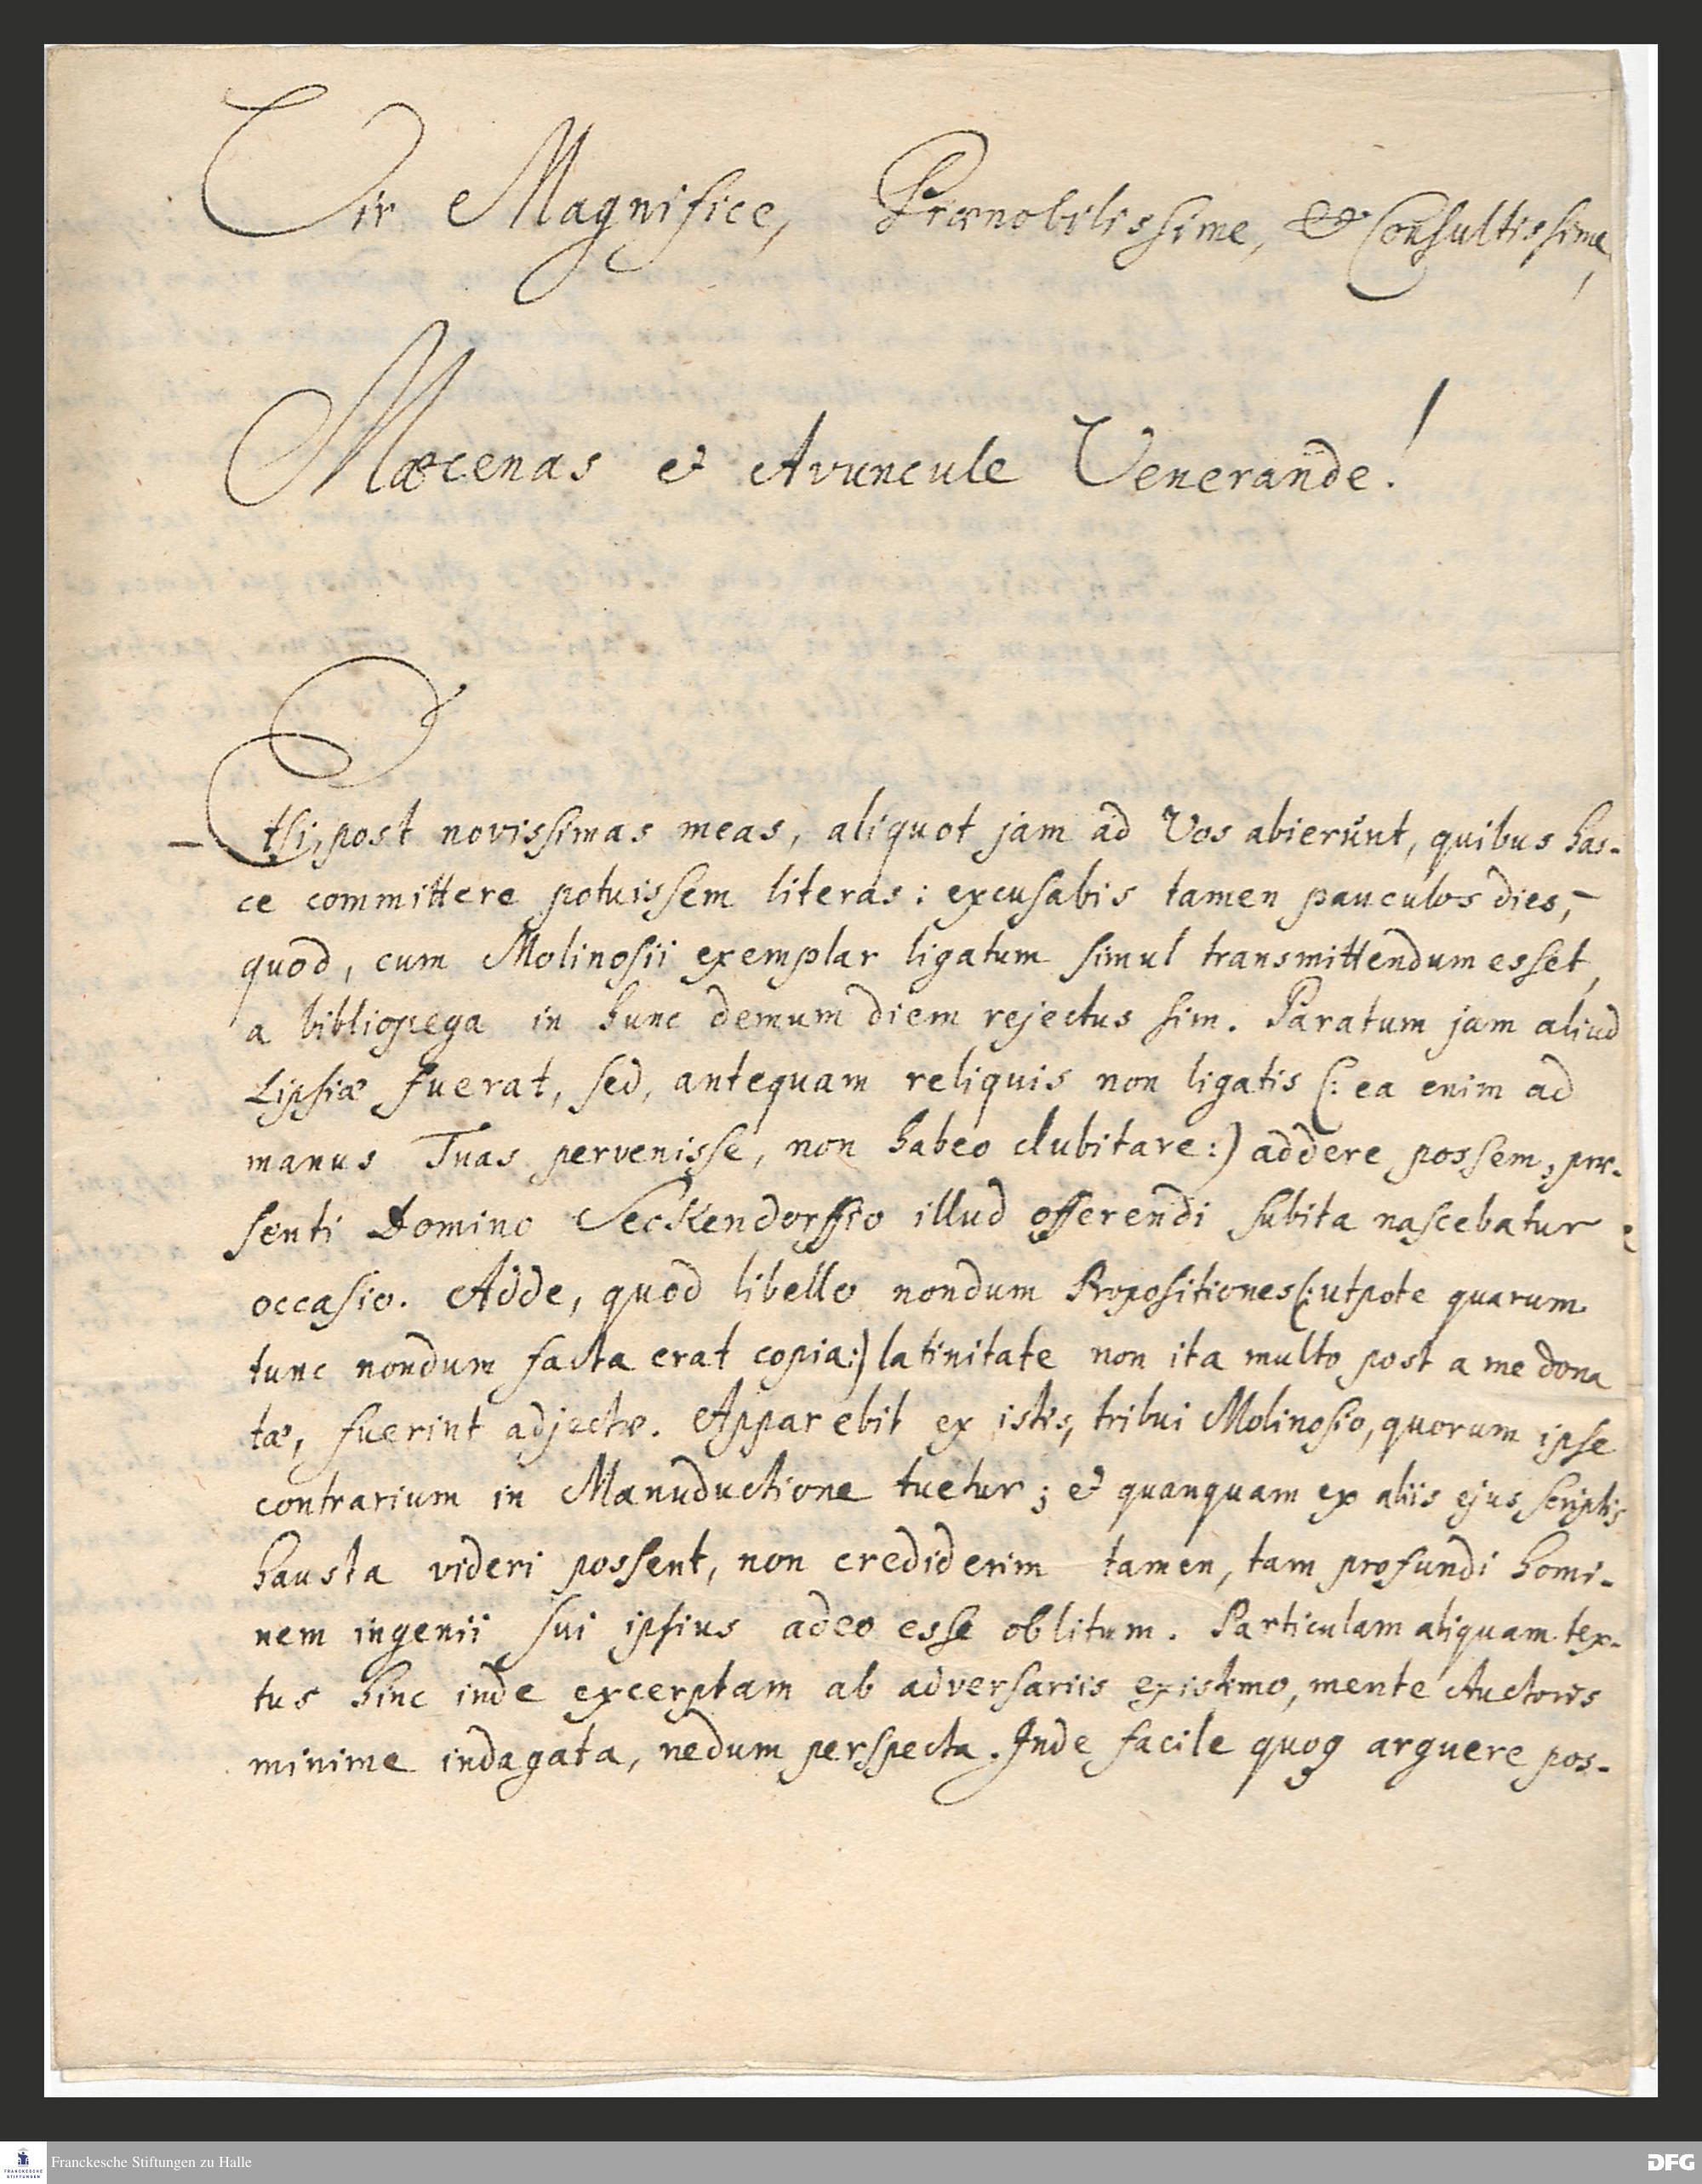 Vir Magnifice, Prænobilissime, & Consultissime,
Mæcenas & Avuncule Venerande!
Etsi, post novissimas meas, aliquot jam ad Vos abierunt, quibus has-
ce committere potuissem literas: excusabis tamen pauculos dies,
quod, cum Molinosii exemplar ligatum simul transmittendum esset,
a bibliopega in hunc demum diem rejectus sim. Paratum jam aliud
Lipsiæ fuerat, sed, antequam reliquis non ligatis (: ea enim ad
manus Tuas pervenisse, non habeo dubitare:) addere possem, præ-
senti Domino Seckendorffio illud offerendi subita nascebatur
occasio. Adde, quod libello nondum Propositiones (: utpote quarum
tunc nondum facta erat copia:) latinitate non ita multo post a me dona
tæ, fuerint adjectæ. Apparebit ex istis, tribui Molinosio, quorum ipse
contrarium in Manuductione tuetur; & quanquam ex aliis ejus scriptis
hausta videri possent, non crediderim tamen, tam profundi homi-
nem ingenii sui ipsius adeo esse oblitum. Particulam aliquam tex-
tus hinc inde excerptam ab adversariis existimo, mente Auctoris
minime indagata, nedum perspecta. Inde facile quoq arguere pos-
FRANCKESCHE
STIFTUNGEN
Franckesche Stiftungen zu Halle
DFG